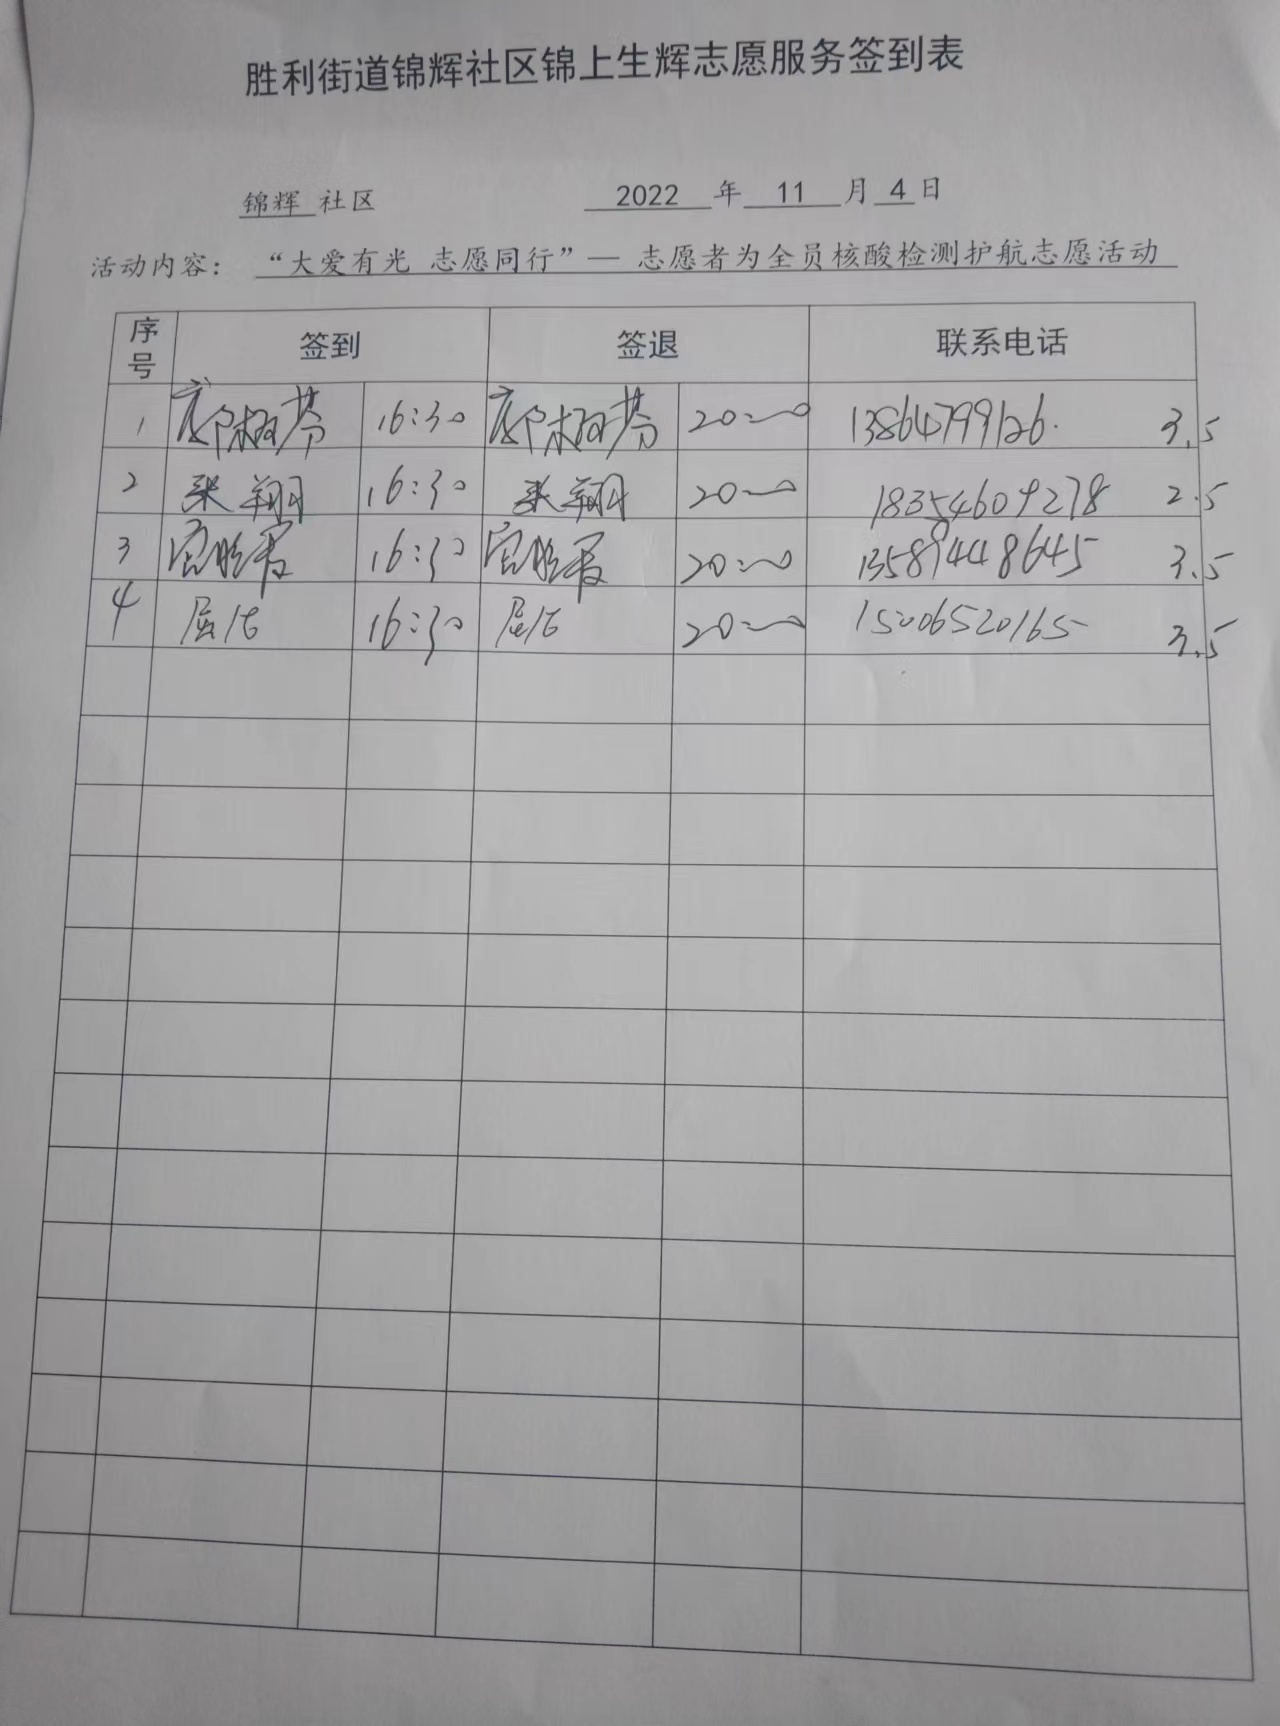 胜利街道锦辉社区锦上生辉志愿服务签到表
锦辉 社区 2022 年 11 月 4 日
活动内容： “大爱有光 志愿同行”— 志愿者为全员核酸检测护航志愿活动
序号 签到 签退 联系电话
1 16:30 20:00 13864799126. 3.5
2 张翔 16:30 张翔 20:00 18354609278 2.5
3 16:30 20:00 13589448645 3.5
4 屈洁 16:30 屈洁 20:00 15006520165 3.5